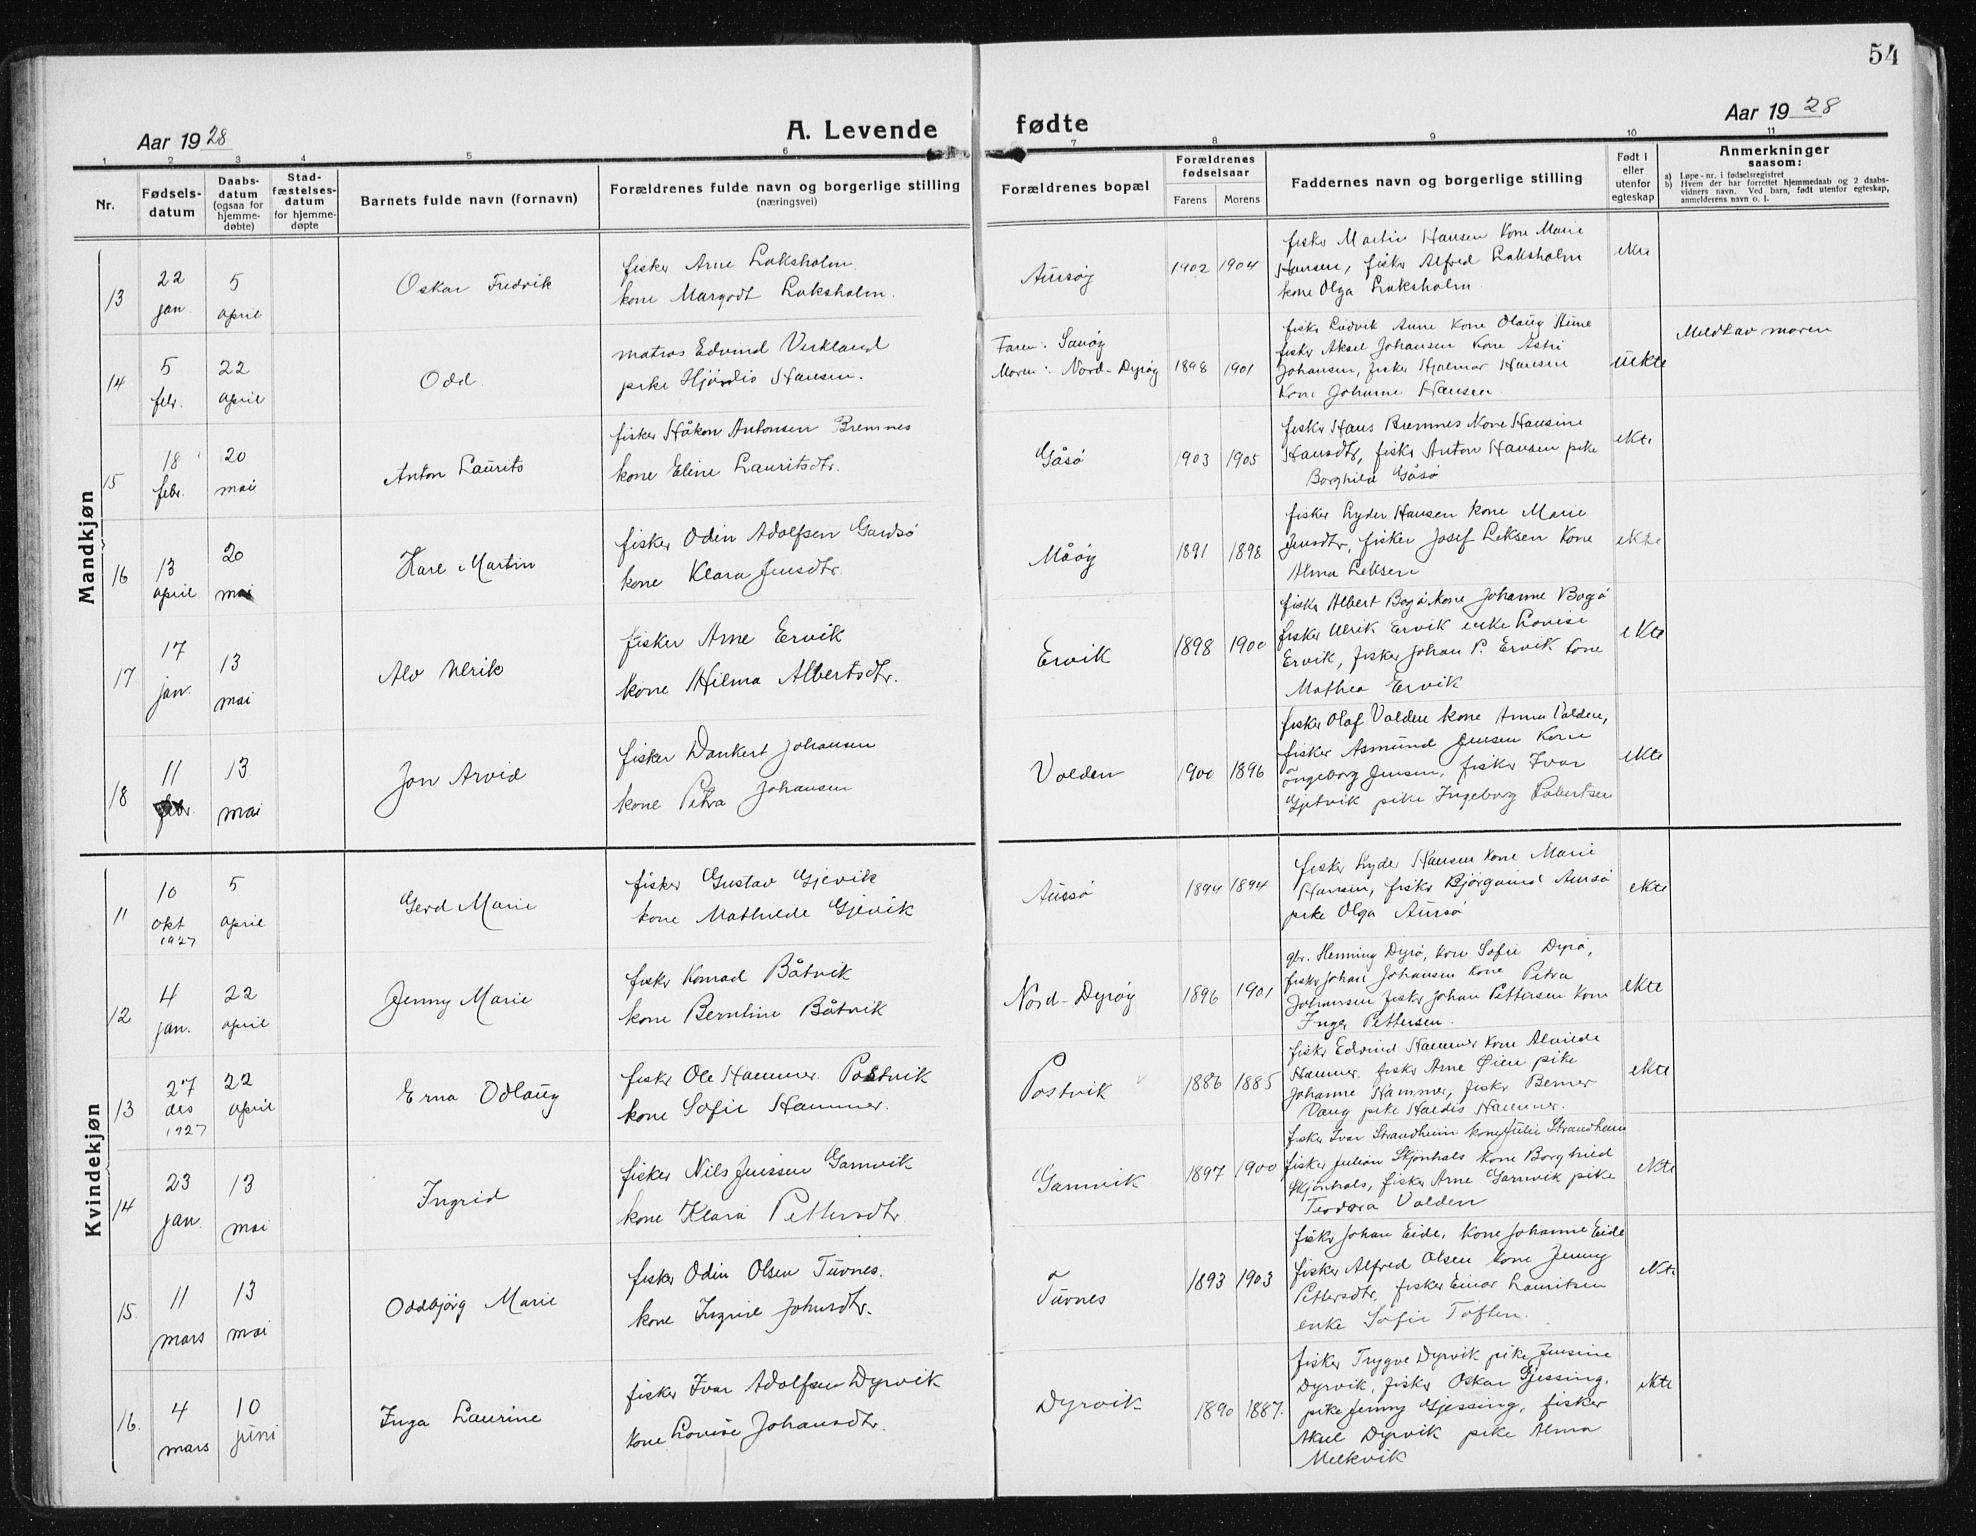 54
Aar 1928
A. Levende fødte
Aar 1928
1 2 3 4 5 6 7 8 9 10 11
Nr.
Fødsels-
datum
Daabs-
datum
(ogsaa for
hjemme-
døbte)
Stad-
fæstelses-
datum
for hjemme-
døpte
Barnets fulde navn (fornavn)
Forældrenes fulde navn og borgerlige stilling
(næringsvei)
Forældrenes bopæl
Forældrenes
fødselsaar
Farens Morens
Faddernes navn og borgerlige stilling
Født i
eller
utenfor
egteskap
Anmerkninger
saasom:
a) Løpe-nr. i fødselsregistret
b) Hvem der har forrettet hjemmedaab og 2 daabs-
vidners navn. Ved barn, født utenfor egteskap,
anmelderens navn o. l.
Mandkjøn
13
22
jan
5
april
Oskar Fredrik
fisker Arne Laksholm
kone Margodt Laksholm.
Aursøy
1902 1904
fisker Martin Hansen kone Marie
Hansen, fisker Alfred Laksholm
kone Olga Laksholm
ekte
14
5
febr.
22
april
Odd.
matros Edvind Verkland
pike Hjørdis Hansen.
Faren: Sanøy
Moren: Nord-Dyrøy
1898 1901
fisker Ludvik Aune kone Olaug Aune
fisker Aksel Johansen kone Astri
Johansen, fisker Hjalmar Hansen
kone Johanne Hansen
uekte
Meldt av moren
15
18
febr.
20
mai
Anton Laurits
fisker Håkon Antonsen Bremnes
kone Eline Lauritsdtr.
Gåsø
1903 1905
fisker Hans Bremnes kone Hansine
Hansdtr, fisker Anton Hansen pike
Borghild Gåsø
ekte
16
13
april
20
mai
Kare Martin
fisker Odin Adolfsen Gardsø
kone Klara Jensdtr.
Måøy
1891 1898
fisker Lyder Hansen kone Marie
Jensdtr, fisker Josef Leksen kone
Alma Leksen
ekte
17
17
jan.
13
mai
Alv Ulrik
fisker Arne Ervik
kone Hilma Albertsdtr.
Ervik
1898 1900
fisker Albert Bogø kone Johanne Bogø
fisker Ulrik Ervik enke Lovise
Ervik, fisker Johan P. Ervik kone
Mathea Ervik
ekte
18
11
febr.
13
mai
Jon Arvid
fisker Dankert Johansen
kone Petra Johansen
Valden
1900 1896
fisker Olaf Valden kone Anna Valden,
fisker Asmund Jensen kone
Ingeborg Jensen, fisker Ivar
Gjetvik pike Ingeborg Robertsen
ekte
Kvindekjøn
11
10
okt
1927
5
april
Gerd Marie
fisker Gustav Gjevik
kone Mathilde Gjevik
Aursø
1894 1894
fisker Lyder Hansen kone Marie
Hansen, fisker Bjørgvind Aursø
pike Olga Aursø
ekte
12
4
jan.
22
april
Jenny Marie
fisker Konrad Båtvik
kone Berntine Båtvik
Nord-Dyrøy
1896 1901
gbr. Henning Dyrø, kone Sofie Dyrø,
fisker Johan Johansen kone Petra
Johansen fisker Johan Pettersen kone
Inger Pettersen.
ekte
13
27
des
1927
22
april
Erna Odlaug
fisker Ole Hammer. Postvik
kone Sofie Hammer.
Postvik
1886 1885
fisker Edvind Hammer kone Alvilde
Hammer. fisker Arne Øien pike
Johanne Hammer, fisker Berner
Vang pike Haldis Hammer.
ekte
14
23
jan.
13
mai
Ingrid
fisker Nils Jenssen Gamvik
kone Klara Pettersdtr.
Gamvik
1897 1900
fisker Ivar Strandheim kone Julie Strandheim
fisker Julian Skjønhals kone Borghild
Skjønhals, fisker Arne Garnvik pike
Teodora Valden
ekte
15.
11
mars
13
mai
Oddbjørg Marie
fisker Odin Olsen Tuvnes.
kone Ingrid Johnsdtr.
Tuvnes
1893 1903
fisker Johan Eide, kone Johanne Eide
fisker Alfred Olsen kone Jenny
Pettersdtr, fisker Einar Lauritsen
enke Sofie Toften.
ekte
16.
4
mars
10
juni
Inga Laurine
fisker Ivar Adolfsen Dyrvik
kone Lovise Johansdtr.
Dyrvik
1890 1887.
fisker Trygve Dyrvik pike Jensine
Dyrvik, fisker Oskar Gjessing,
pike Jenny Gjessing, fisker
Aksel Dyrvik pike Alma
Melkvik
ekte